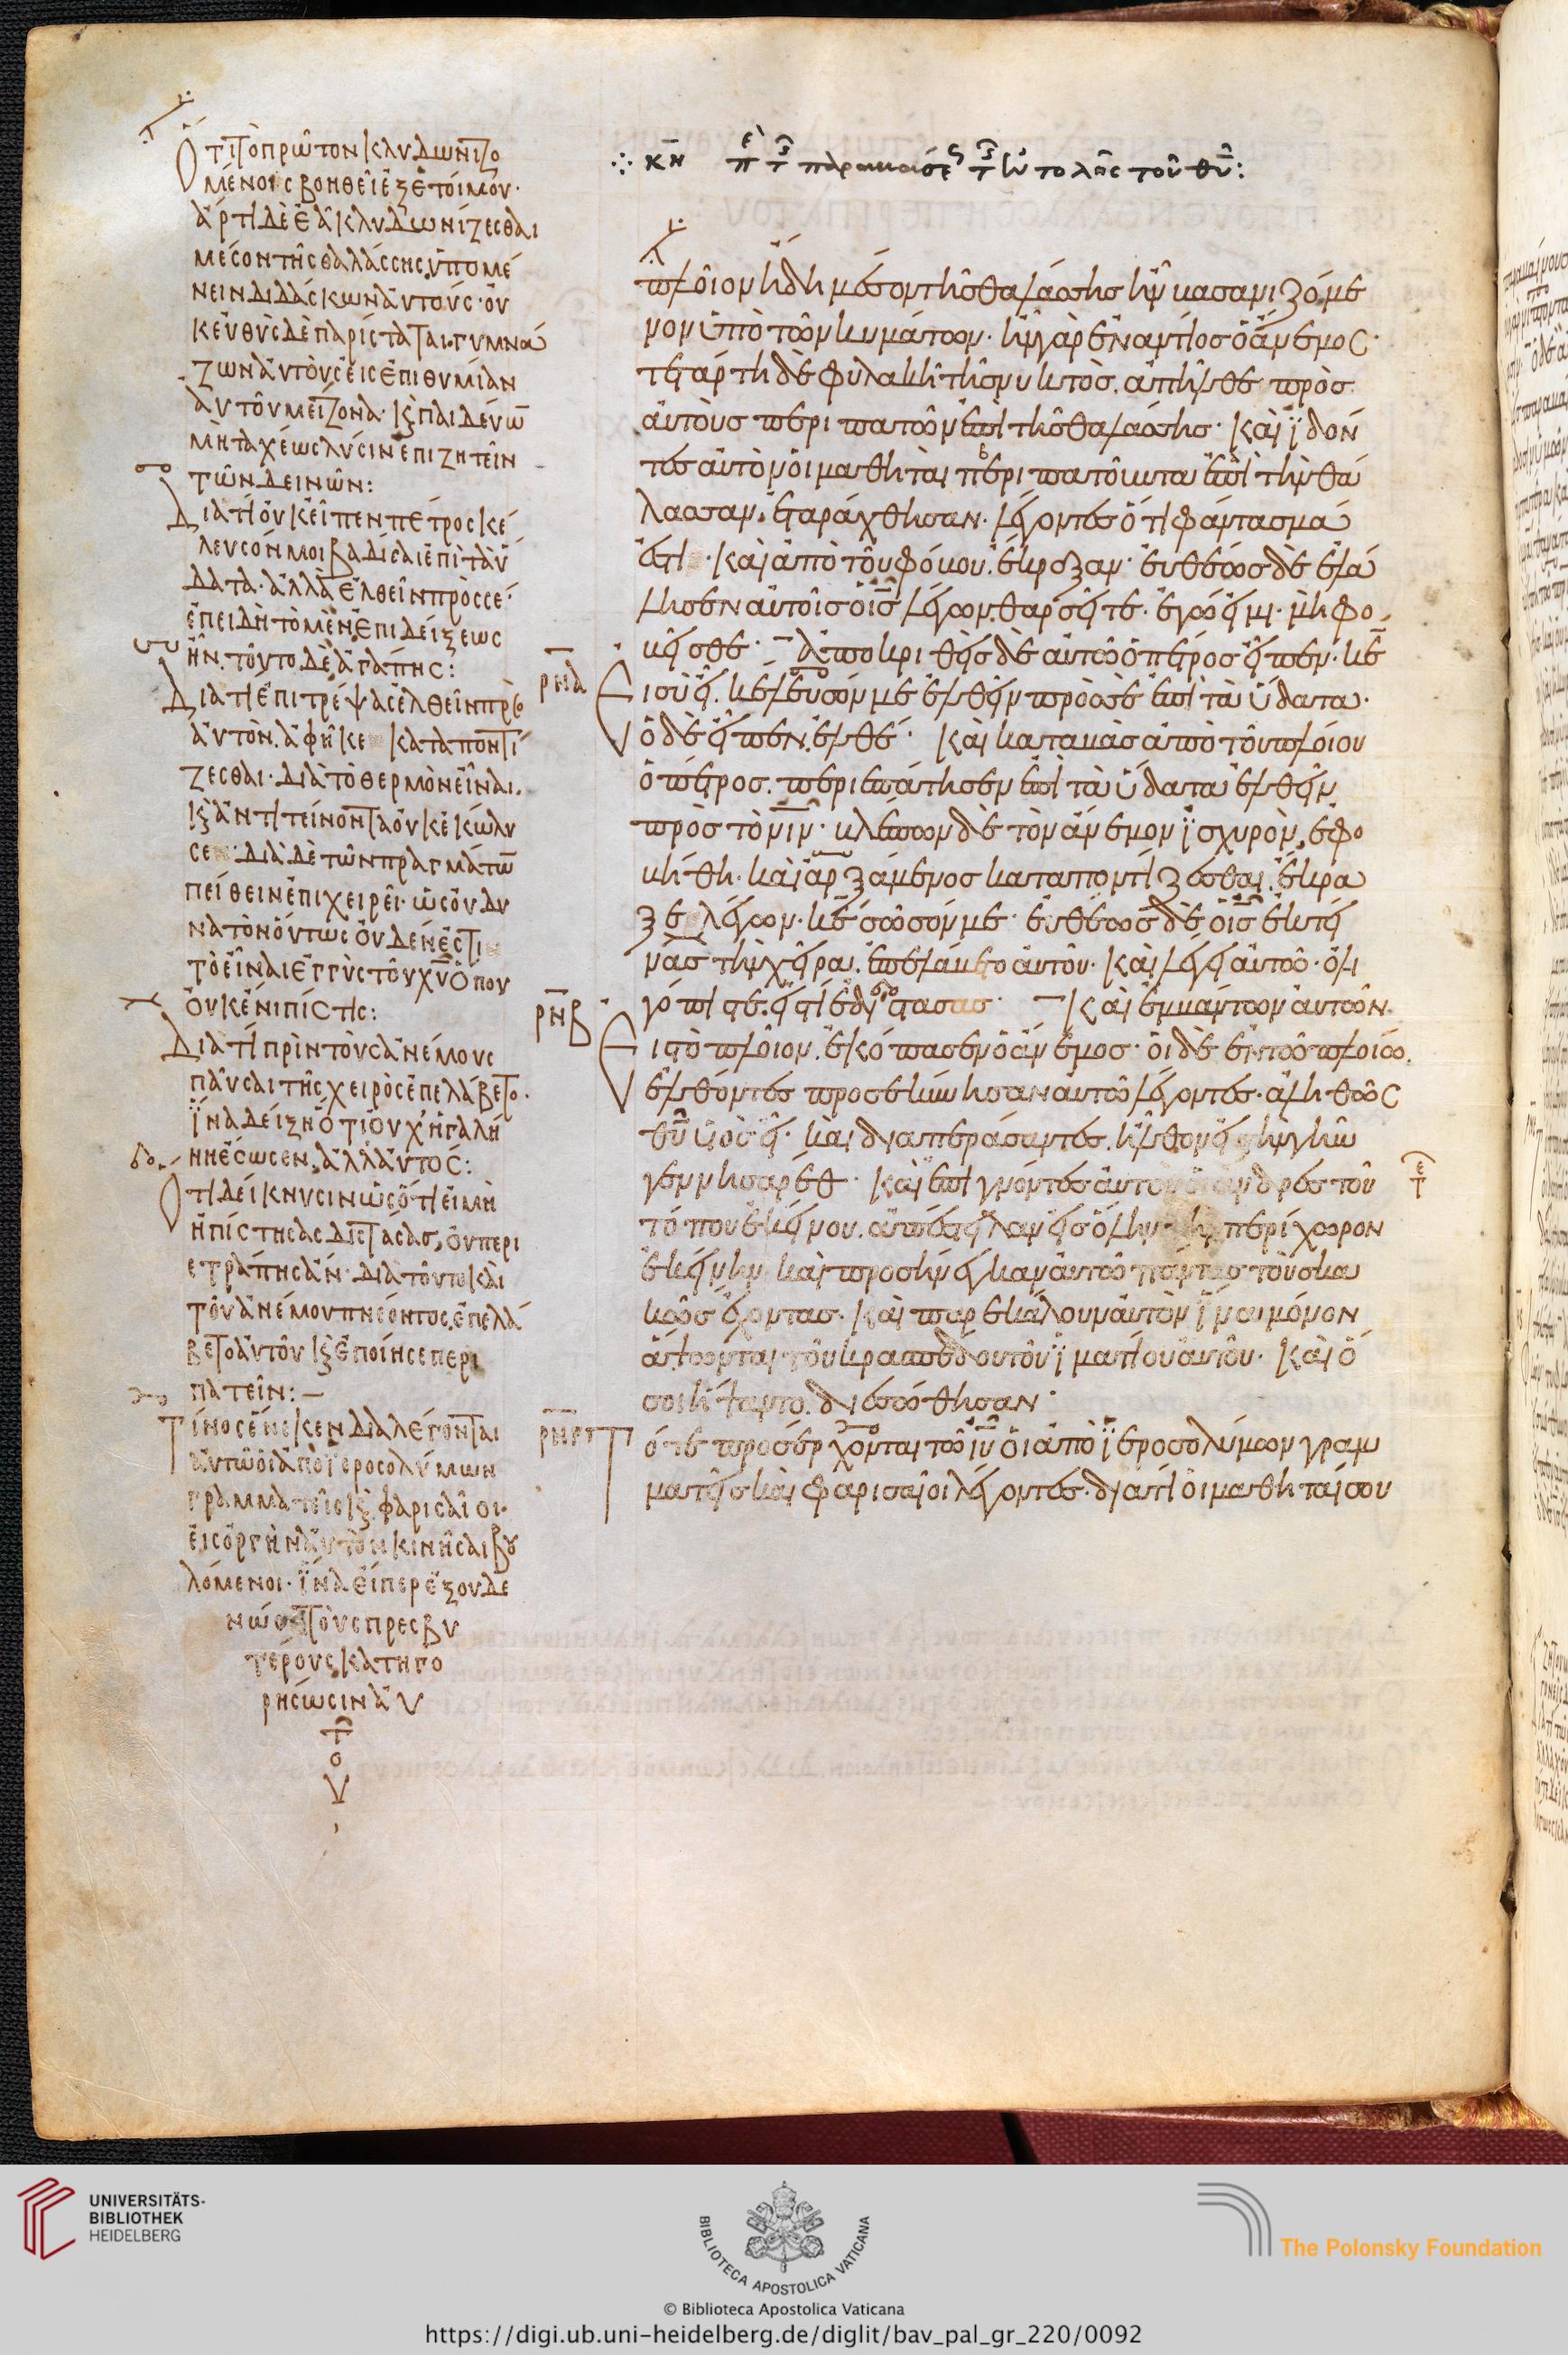 ὅτι τὸ πρῶτον κλυδωνιζο
μένοις βοηθεῖ ἐξ ἑτοίμου·
ἄρτι δὲ ἐᾶ κλυδωνίζεσθαι
μέσον τῆς θαλάσσης, ὑπομέ
νειν διδάσκων αὐτούς· οὐ
κ εὐθὺς δὲ παρίσταται. γυμνά
ζων αὐτοὺς εἰς ἐπιθυμίαν
αὐτοῦ μείζονα· κ παιδεύω̅
μὴ ταχέως λύσιν ἐπιζητεῖν
τῶν δεινῶν:
Διατί οὐκ εἶπεν πέτρος κέ
λευσόν μοι βαδίσαι ἐπὶ τὰ ὕ
δατα· ἀλλὰ ἐλθεῖν πρός σε·
ἐπειδὴ τὸ μὲν ἐπιδείξεως
ἦν. τοῦτο δὲ ἀγάπης:
Διατί ἐπιτρέψας ἐλθεῖν πρὸς
αὐτὸν. ἀφῆκε καταποντί
ζεσθαι· διὰ τὸ θερμὸν εἶναι.
κ ἀντιτείνοντα οὐκ ἐκώλυ
σε· διὰ δὲ τῶν πραγμάτω̅
πείθειν ἐπιχειρεῖ· ὡς οὐ δυ
νατὸν ὄντως οὐδέν ἐστι
τὸ εἶναι ἐγγὺς τοῦ χυ̅ ὅπου
οὐκ ἔνι πίστις:
Διατί πρὶν τοὺς ἀνέμους
παῦσαι τῆς χειρὸς ἐπελάβετο·
ἵνα δείξη ὅτι οὐχ ἡ γαλή
νη ἔσωσεν, ἀλλ' αὐτός:
Ὅτι δείκνυσιν ὡς ὅτι εἰ μὴ
ἠπίστησας διστάσας, οὐ περι
ετράπης ἄν· διὰ τοῦτο καὶ
τοῦ ἀνέμου πνέοντος, ἐπελά
βετο αὐτοῦ κ ἐποίησε περι
πατεῖν: —
Τίνος ἕνεκεν διαλέγονται
αὐτῶ οἱ ἀπὸ ἱεροσολύμων
γραμματεῖς κ φαρισαῖοι·
εἰς ὀργὴν αὐτὸν κινῆσαι βου
λόμενοι· ἵνα εἴπερ ἐξουδε
νώσ τοὺς πρεσβυ
τέρους, κατηγο
ρήσωσιν αὐ
τ
ο
υ
∴ κ̅ν̅ παρασκε τ τ ἐντολῆς τοῦ θυ̅:
πλοῖον ἤδη μέσον τῆς θαλάσσης ἦν βασανιζόμε
νον ὑπὸ τῶν κυμάτων· ἦν γὰρ ἐναντίος ὁ ἄνεμος·
τετάρτη δὲ φυλακῆ τῆς νυκτὸς. ἀπῆλθε πρὸς
αὐτοὺς περιπατῶν ἐπὶ τῆς θαλάσσης· καὶ ἰδόν
τες αὐτὸν οἱ μαθηταὶ περιπατοῦντα ἐπὶ τὴν θά
λασσαν, ἐταράχθησαν· λέγοντες ὅτι φάντασμά
ἐστι· καὶ ἀπὸ τοῦ φόβου. ἔκραξαν· εὐθέως δὲ ἐλά
λησεν αὐτοῖς ὁ ις̅ λέγων. θαρσεῖτε· ἐγώ εἰμι· μὴ φο
βεῖσθε· ἀποκριθεὶς δὲ αὐτῶ ὁ πέτρος εἶπεν· κε̅
ρνα εἰ σὺ εἶ. κέλευσόν με ἐλθεῖν πρὸς σὲ ἐπὶ τὰ ὕδατα·
ὁ δὲ εἶπεν. ἐλθέ· καὶ καταβὰς ἀπὸ τοῦ πλοίου
ὁ πέτρος. περιεπάτησεν ἐπὶ τὰ ὕδατα ἐλθεῖν
πρὸς τὸν ιν̅· βλέπων δὲ τὸν ἄνεμον ἰσχυρὸν, ἐφο
βήθη. καὶ ἀρξάμενος καταποντίζεσθαι. ἔκρα
ξε λέγων. κε̅ σῶσόν με· εὐθέως δὲ ὁ ις̅ ἐκτεί
νας τὴν χεῖρα. ἐπελάβετο αὐτοῦ· καὶ λέγει αὐτῶ· ὀλι
γόπιστε. εἰς τί ἐδίστασας· καὶ ἐμβάντων αὐτῶν
ρνβ εἰς τὸ πλοῖον. ἐκόπασεν ὁ ἄνεμος· οἱ δὲ ἐν τῶ πλοίω.
ἐλθόντες προσεκύνησαν αὐτῶ λέγοντες· ἀληθῶς
θυ̅ υἱὸς εἶ· καὶ διαπεράσαντες. ἦλθον εἰς τὴν γῆν
γεννησαρέθ· καὶ ἐπιγνόντες αὐτὸν οἱ ἄνδρες τοῦ
τόπου ἐκείνου. ἀπέστειλαν εἰς ὅλην τὴν περίχωρον
ἐκείνην καὶ προσήνεγκαν αὐτῶ πάντας τοὺς κα
κῶς ἔχοντας· καὶ παρεκάλουν αὐτὸν ἵνα μόνον
ἅπτωνται τοῦ κρασπέδου τοῦ ἱματίου αὐτοῦ· καὶ ὅ
σοι ἥπτοντο. διεσώθησαν·
ρνγ Τότε προσέρχονται τῶ ιυ̅ οἱ ἀπὸ ἱεροσολύμων γραμ
ματεῖς καὶ φαρισαῖοι λέγοντες. διατί οἱ μαθηταί σου
UNIVERSITÄTS-
BIBLIOTHEK
HEIDELBERG
BIBLIOTECA APOSTOLICA VATICANA
The Polonsky Foundation
© Biblioteca Apostolica Vaticana
https://digi.ub.uni-heidelberg.de/diglit/bav_pal_gr_220/0092